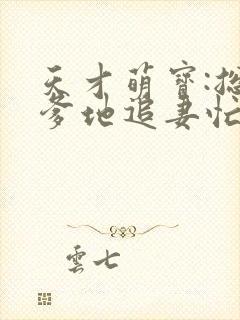 天才萌寶:總
爹地追妻忙
雲七